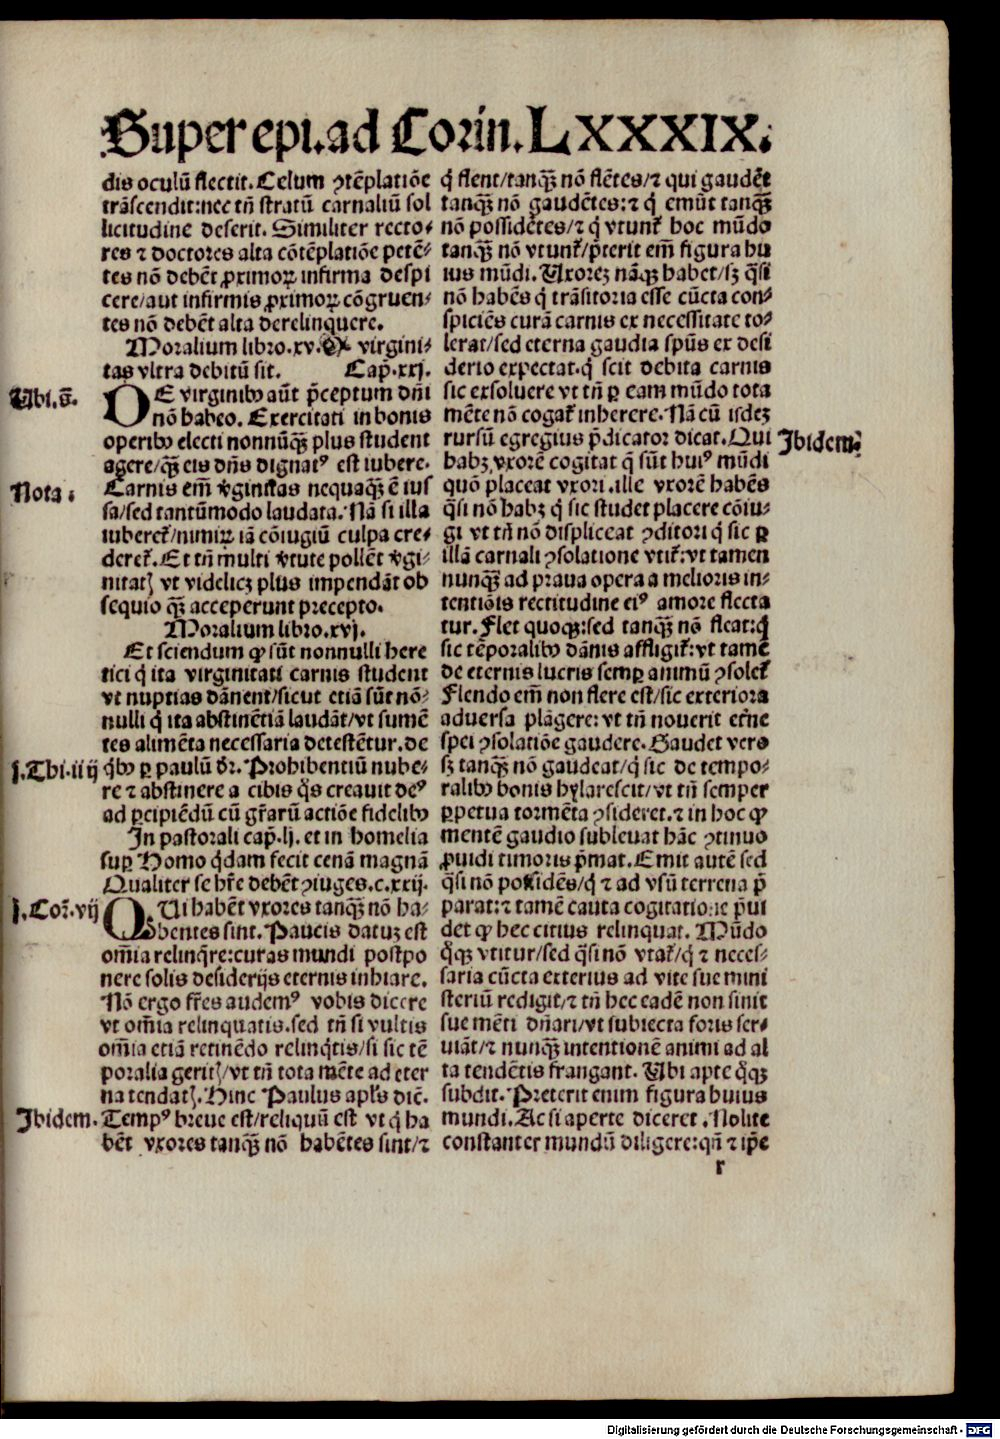 Super epi.ad Corin. LXXXIX.
dis oculū flectit. Celum ꝯtēplatiōe
trāscendit:nec tn̄ stratū carnaliū sol
licitudine deserit. Similiter recto-
res ⁊ doctores alta cōtēplatiōe petē-
tes nō debēt ꝓximoꝝ infirma despi
cere/aut infirmis ꝓximoꝝ cōgruen-
tes nō debēt alta derelinquere.
Moralium libro.xv. virgini-
tas vltra debitū sit. Cap̄.xxj.
Ubi.s̄.
DE virginibꝰ aūt p̄ceptum dn̄i
nō habeo. Exercitati in bonis
operibꝰ electi nonnūqꝫ plus student
agere/qꝫ eis dn̄s dignatꝰ est iubere.
Nota:
Carnis em̄ v̓ginitas nequaqꝫ ē ius
sa/sed tantūmodo laudata. Nā si illa
iuberet᷑/nimiꝝ iā cōiugiū culpa cre-
deret᷑. Et tn̄ multi v̓tute pollēt v̓gi-
nitatꝭ vt videlicꝫ plus impendāt ob
sequio qꝫ acceperunt precepto.
Moralium libro.xvj.
Et sciendum ꝙ sūt nonnulli here
tici q̓ ita virginitati carnis student
vt nuptias dānent/sicut etiā sūt nō-
nulli q̓ ita abstinētiā laudāt/vt sumē
tes alimēta necessaria detestētur. de
j. Thi. iiij
q̓bꝰ ꝑ paulū dr̄. Prohibentiū nube-
re ⁊ abstinere a cibis q̄s creauit deꝰ
ad ꝑcipiēdū cū gr̄arū actiōe fidelibꝰ
In pastorali cap̄.lj. et in homelia
suꝑ Homo q̓dam fecit cenā magnā
Qualiter se hr̄e debēt ꝯiuges.c.xxij.
j. Cor̄. vij
QUi habēt vxores tanqꝫ nō ha-
bentes sint. Paucis datuꝫ est
om̄ia relinq̄re:curas mundi postpo
nere solis desiderijs eternis inhiare.
Nō ergo fr̄es audemꝰ vobis dicere
vt om̄ia relinquatis.sed tn̄ si vultis
om̄ia etiā retinēdo relinq̓tis/si sic tē
poralia geritꝭ/vt tn̄ tota mēte ad eter
na tendatꝭ. Hinc Paulus apl's dic̄.
Ibidem.
Tempꝰ breue est/reliquū est vt q̓ ha
bēt vxores tanqꝫ nō habētes sint/⁊
q̓ flent/tanqꝫ nō flētes/⁊ qui gaudēt
tanqꝫ nō gaudētes:⁊ q̓ emūt tanqꝫ
nō possidētes/⁊ q̓ vtunt᷑ hoc mūdo
tanqꝫ nō vtunt᷑/p̄terit em̄ figura hu
ius mūdi. Uxoreꝫ nāqꝫ habet/sꝫ q̄si
nō habēs q̓ trāsitoria esse cūcta con-
spiciēs curā carnis ex necessitate to-
lerat/sed eterna gaudia spūs ex desi
derio expectat. q̓ scit debita carnis
sic exsoluere vt tn̄ ꝑ eam mūdo tota
mēte nō cogat᷑ inherere. Nā cū isdeꝫ
rursū egregius p̄dicator dicat. Qui
Ibidem:
habꝫ vxorē cogitat q̄ sūt huiꝰ mūdi
quō placeat vxori. ille vxorē habēs
q̄si nō habꝫ q̓ sic studet placere cōiu-
gi vt tn̄ nō displiceat ꝯditori q̓ sic ꝑ
illā carnali ꝯsolatione vtit᷑:vt tamen
nunqꝫ ad praua opera a melioris in-
tentiōis rectitudine eiꝰ amore flecta
tur. Flet quoqꝫ:sed tanqꝫ nō fleat:q̓
sic tēporalibꝰ dānis affligit᷑:vt tamē
de eternis lucris semꝑ animū ꝯsolet᷑
Flendo em̄ non flere est/sic exteriora
aduersa plāgere: vt tn̄ nouerit et̓ne
spei ꝯsolatiōe gaudere. Gaudet vero
sꝫ tanqꝫ nō gaudeat/q̓ sic de tempo-
ralibꝰ bonis hylarescit/vt tn̄ semper
ꝑpetua tormēta ꝯsideret. ⁊ in hoc ꝙ
mentē gaudio subleuat hāc ꝯtinuo
ꝓuidi timoris p̄mat. Emit autē sed
q̄si nō possidēs/q̓ ⁊ ad vsū terrena p̄
parat:⁊ tamē cauta cogitatione p̄ui
det ꝙ hec citius relinquat. Mūdo
q̊qꝫ vtitur/sed q̄si nō vtat᷑/q̓ ⁊ neces-
saria cūcta exterius ad vite sue mini
steriū redigit/⁊ tn̄ hec eadē non sinit
sue mēti dn̄ari/vt subiecta foris ser-
uiāt/⁊ nunqꝫ intentionē animi ad al
ta tendētis frangant. Ubi apte q̊qꝫ
subdit. Preterit enim figura huius
mundi. Ac si aperte diceret. Nolite
constanter mundū diligere:qn̄ ⁊ ip̄e
r
Digitalisierung gefördert durch die Deutsche Forschungsgemeinschaft - DFG